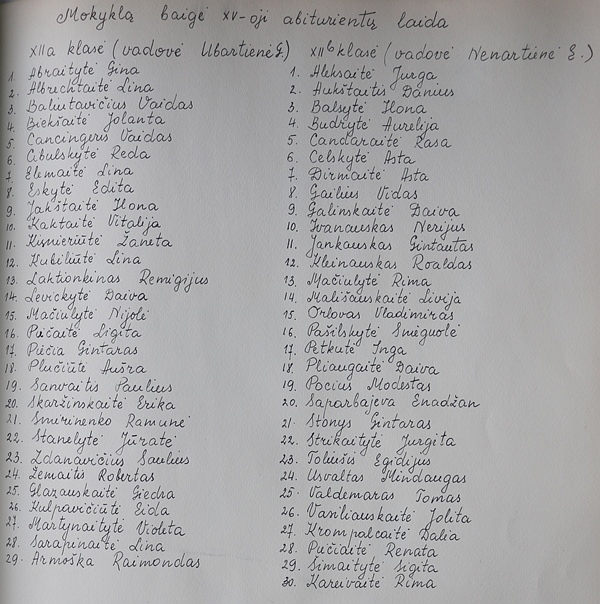 Mokyklą baigė XV-oji abiturientų laida
XIIa klasė (vadovė Ubartienė G.)
1. Abraitytė Gina
2. Albrechtaitė Lina
3. Baliutavičius Vaidas
4. Biekšaitė Jolanta
5. Cancingeris Vaidas
6. Cibulskytė Reda
7. Elemaitė Lina
8. Eskytė Edita
9. Jakštaitė Ilona
10. Kaktaitė Vitalija
11. Kisnieriūtė Žaneta
12. Kubiliūtė Lina
13. Laktionkinas Remigijus
14. Levickytė Daiva
15. Mačiulytė Nijolė
16. Pečaitė Ligita
17. Piečia Gintaras
18. Plučiūtė Aušra
19. Sanvaitis Paulius
20. Skaržinskaitė Erika
21. Smirinenko Ramunė
22. Stanelytė Jūratė
23. Zdanavičius Saulius
24. Žemaitis Robertas
25. Glazauskaitė Giedra
26. Kulpavičiūtė Eida
27. Martynaitytė Violeta
28. Sarapinaitė Lina
29. Armoška Raimondas
XIIb klasė (vadovė Nenartienė E.)
1. Aleksaitė Jurga
2. Aukštaitis Danius
3. Balsytė Ilona
4. Budrytė Aurelija
5. Candaraitė Rasa
6. Celskytė Asta
7. Dirmaitė Asta
8. Gailius Vidas
9. Galinskaitė Daiva
10. Ivanauskas Nerijus
11. Jankauskas Gintautas
12. Kleinauskas Roaldas
13. Mačiulytė Rima
14. Mališauskaitė Livija
15. Orlovas Vladimiras
16. Pašilskytė Snieguolė
17. Petkutė Inga
18. Pliaugaitė Daiva
19. Pocius Modestas
20. Saparbajeva Enadžan
21. Stonys Gintaras
22. Strikaitytė Jurgita
23. Toliušis Egidijus
24. Usvaltas Mindaugas
25. Valdemaras Tomas
26. Vasiliauskaitė Jolita
27. Krompalcaitė Dalia
28. Pučiditė Renata
29. Šimaitytė Sigita
30. Kareivaitė Rima